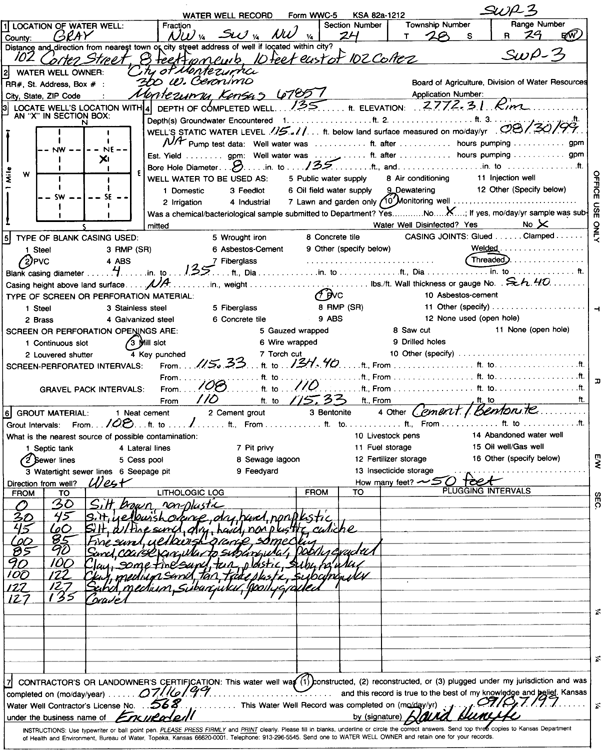 WATER WELL RECORD Form WWC-5 KSA 82a-1212 SWP-3
1 LOCATION OF WATER WELL: Fraction Section Number Township Number Range Number
County: GRAY NW ¼ SW ¼ NW ¼ 24 T 28 S R 29 E/W
Distance and direction from nearest town or city street address of well if located within city?
102 Cortez Street, 8 feet from curb, 10 feet east of 102 Cortez SWP-3
2 WATER WELL OWNER: City of Montezuma
RR#, St. Address, Box # : 300 W. Geronimo Board of Agriculture, Division of Water Resources
City, State, ZIP Code : Montezuma, Kansas 67857 Application Number:
3 LOCATE WELL'S LOCATION WITH AN "X" IN SECTION BOX:
N
NW NE
X
W E
SW SE
S
1 Mile
4 DEPTH OF COMPLETED WELL 135 ft. ELEVATION: 2772.31 Rim
Depth(s) Groundwater Encountered 1. ft. 2. ft. 3. ft.
WELL'S STATIC WATER LEVEL 115.11 ft. below land surface measured on mo/day/yr 08/30/99
NA Pump test data: Well water was ft. after hours pumping gpm
Est. Yield gpm: Well water was ft. after hours pumping gpm
Bore Hole Diameter 8 in. to 135 ft., and in. to ft.
WELL WATER TO BE USED AS: 5 Public water supply 8 Air conditioning 11 Injection well
1 Domestic 3 Feedlot 6 Oil field water supply 9 Dewatering 12 Other (Specify below)
2 Irrigation 4 Industrial 7 Lawn and garden only 10 Monitoring well
Was a chemical/bacteriological sample submitted to Department? Yes No X ; If yes, mo/day/yr sample was submitted
Water Well Disinfected? Yes No X
5 TYPE OF BLANK CASING USED: 5 Wrought iron 8 Concrete tile CASING JOINTS: Glued Clamped
1 Steel 3 RMP (SR) 6 Asbestos-Cement 9 Other (specify below) Welded
2 PVC 4 ABS 7 Fiberglass Threaded
Blank casing diameter 4 in. to 135 ft., Dia in. to ft., Dia in. to ft.
Casing height above land surface NA in., weight lbs./ft. Wall thickness or gauge No. Sch. 40
TYPE OF SCREEN OR PERFORATION MATERIAL: 7 PVC 10 Asbestos-cement
1 Steel 3 Stainless steel 5 Fiberglass 8 RMP (SR) 11 Other (specify)
2 Brass 4 Galvanized steel 6 Concrete tile 9 ABS 12 None used (open hole)
SCREEN OR PERFORATION OPENINGS ARE: 5 Gauzed wrapped 8 Saw cut 11 None (open hole)
1 Continuous slot 3 Mill slot 6 Wire wrapped 9 Drilled holes
2 Louvered shutter 4 Key punched 7 Torch cut 10 Other (specify)
SCREEN-PERFORATED INTERVALS: From 115.33 ft. to 134.40 ft., From ft. to ft.
From ft. to ft., From ft. to ft.
GRAVEL PACK INTERVALS: From 108 ft. to 110 ft., From ft. to ft.
From 110 ft. to 115.33 ft., From ft. to ft.
6 GROUT MATERIAL: 1 Neat cement 2 Cement grout 3 Bentonite 4 Other Cement/Bentonite
Grout Intervals: From 108 ft. to 1 ft., From ft. to ft., From ft. to ft.
What is the nearest source of possible contamination: 10 Livestock pens 14 Abandoned water well
1 Septic tank 4 Lateral lines 7 Pit privy 11 Fuel storage 15 Oil well/Gas well
2 Sewer lines 5 Cess pool 8 Sewage lagoon 12 Fertilizer storage 16 Other (specify below)
3 Watertight sewer lines 6 Seepage pit 9 Feedyard 13 Insecticide storage
Direction from well? West How many feet? ~50 feet
FROM TO LITHOLOGIC LOG FROM TO PLUGGING INTERVALS
0 30 Silt, brown, non-plastic
30 45 Silt, yellowish orange, dry, hard, nonplastic
45 60 Silt, w/fine sand, dry, hard, non plastic, caliche
60 85 Fine sand, yellowish orange, some clay
85 90 Sand, coarse, angular to subangular, poorly graded
90 100 Clay, some fine sand, tan, plastic, subangular
100 122 Clay, medium sand, tan, plastic, subangular
122 127 Sand, medium, subangular, poorly graded
127 135 Gravel
7 CONTRACTOR'S OR LANDOWNER'S CERTIFICATION: This water well was (1) constructed, (2) reconstructed, or (3) plugged under my jurisdiction and was
completed on (mo/day/year) 07/16/99 and this record is true to the best of my knowledge and belief. Kansas
Water Well Contractor's License No. 568 This Water Well Record was completed on (mo/day/yr) 09/07/99
under the business name of by (signature) David
INSTRUCTIONS: Use typewriter or ball point pen. PLEASE PRESS FIRMLY and PRINT clearly. Please fill in blanks, underline or circle the correct answers. Send top three copies to Kansas Department
of Health and Environment, Bureau of Water, Topeka, Kansas 66620-0001. Telephone: 913-296-5545. Send one to WATER WELL OWNER and retain one for your records.
OFFICE USE ONLY
T
R
E/W
SEC.
¼
¼
¼